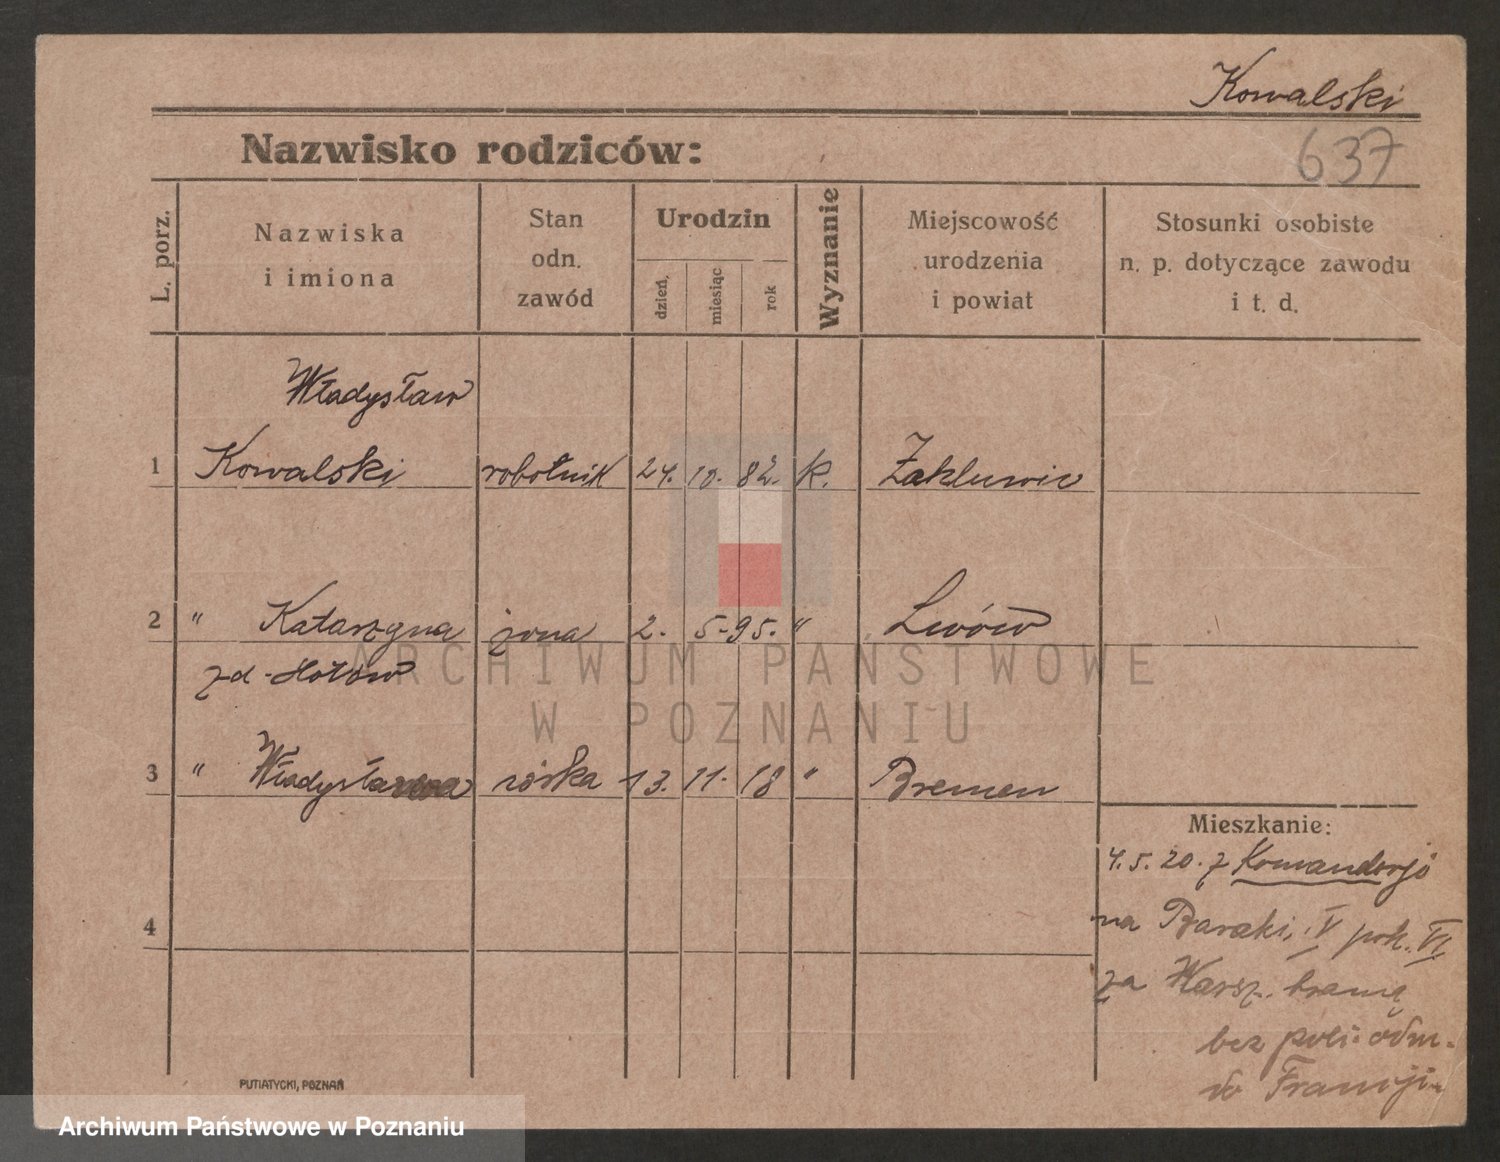 Kowalski
637
Nazwisko rodziców:
L. porz.
Nazwiska
i imiona
Stan
odn.
zawód
Urodzin
dzień,
miesiąc
rok
Wyznanie
Miejscowość
urodzenia
i powiat
Stosunki osobiste
n. p. dotyczące zawodu
i t. d.
Władysław
1 Kowalski robotnik 24. 10. 82. k. Zakluwic
2 " Katarzyna żona 2. 5. 95. " Lwów
zd. Hołów
3 " Władysława córka 13. 11. 18 " Bremen
Mieszkanie:
4.5.20. z Komandorji
4
na Baraki, V pok. VI.
za Warsz. bramą
bez poli. odm.
do Francji.
PUTIATYCKI, POZNAŃ
ARCHIWUM PAŃSTWOWE
W POZNANIU
Archiwum Państwowe w Poznaniu